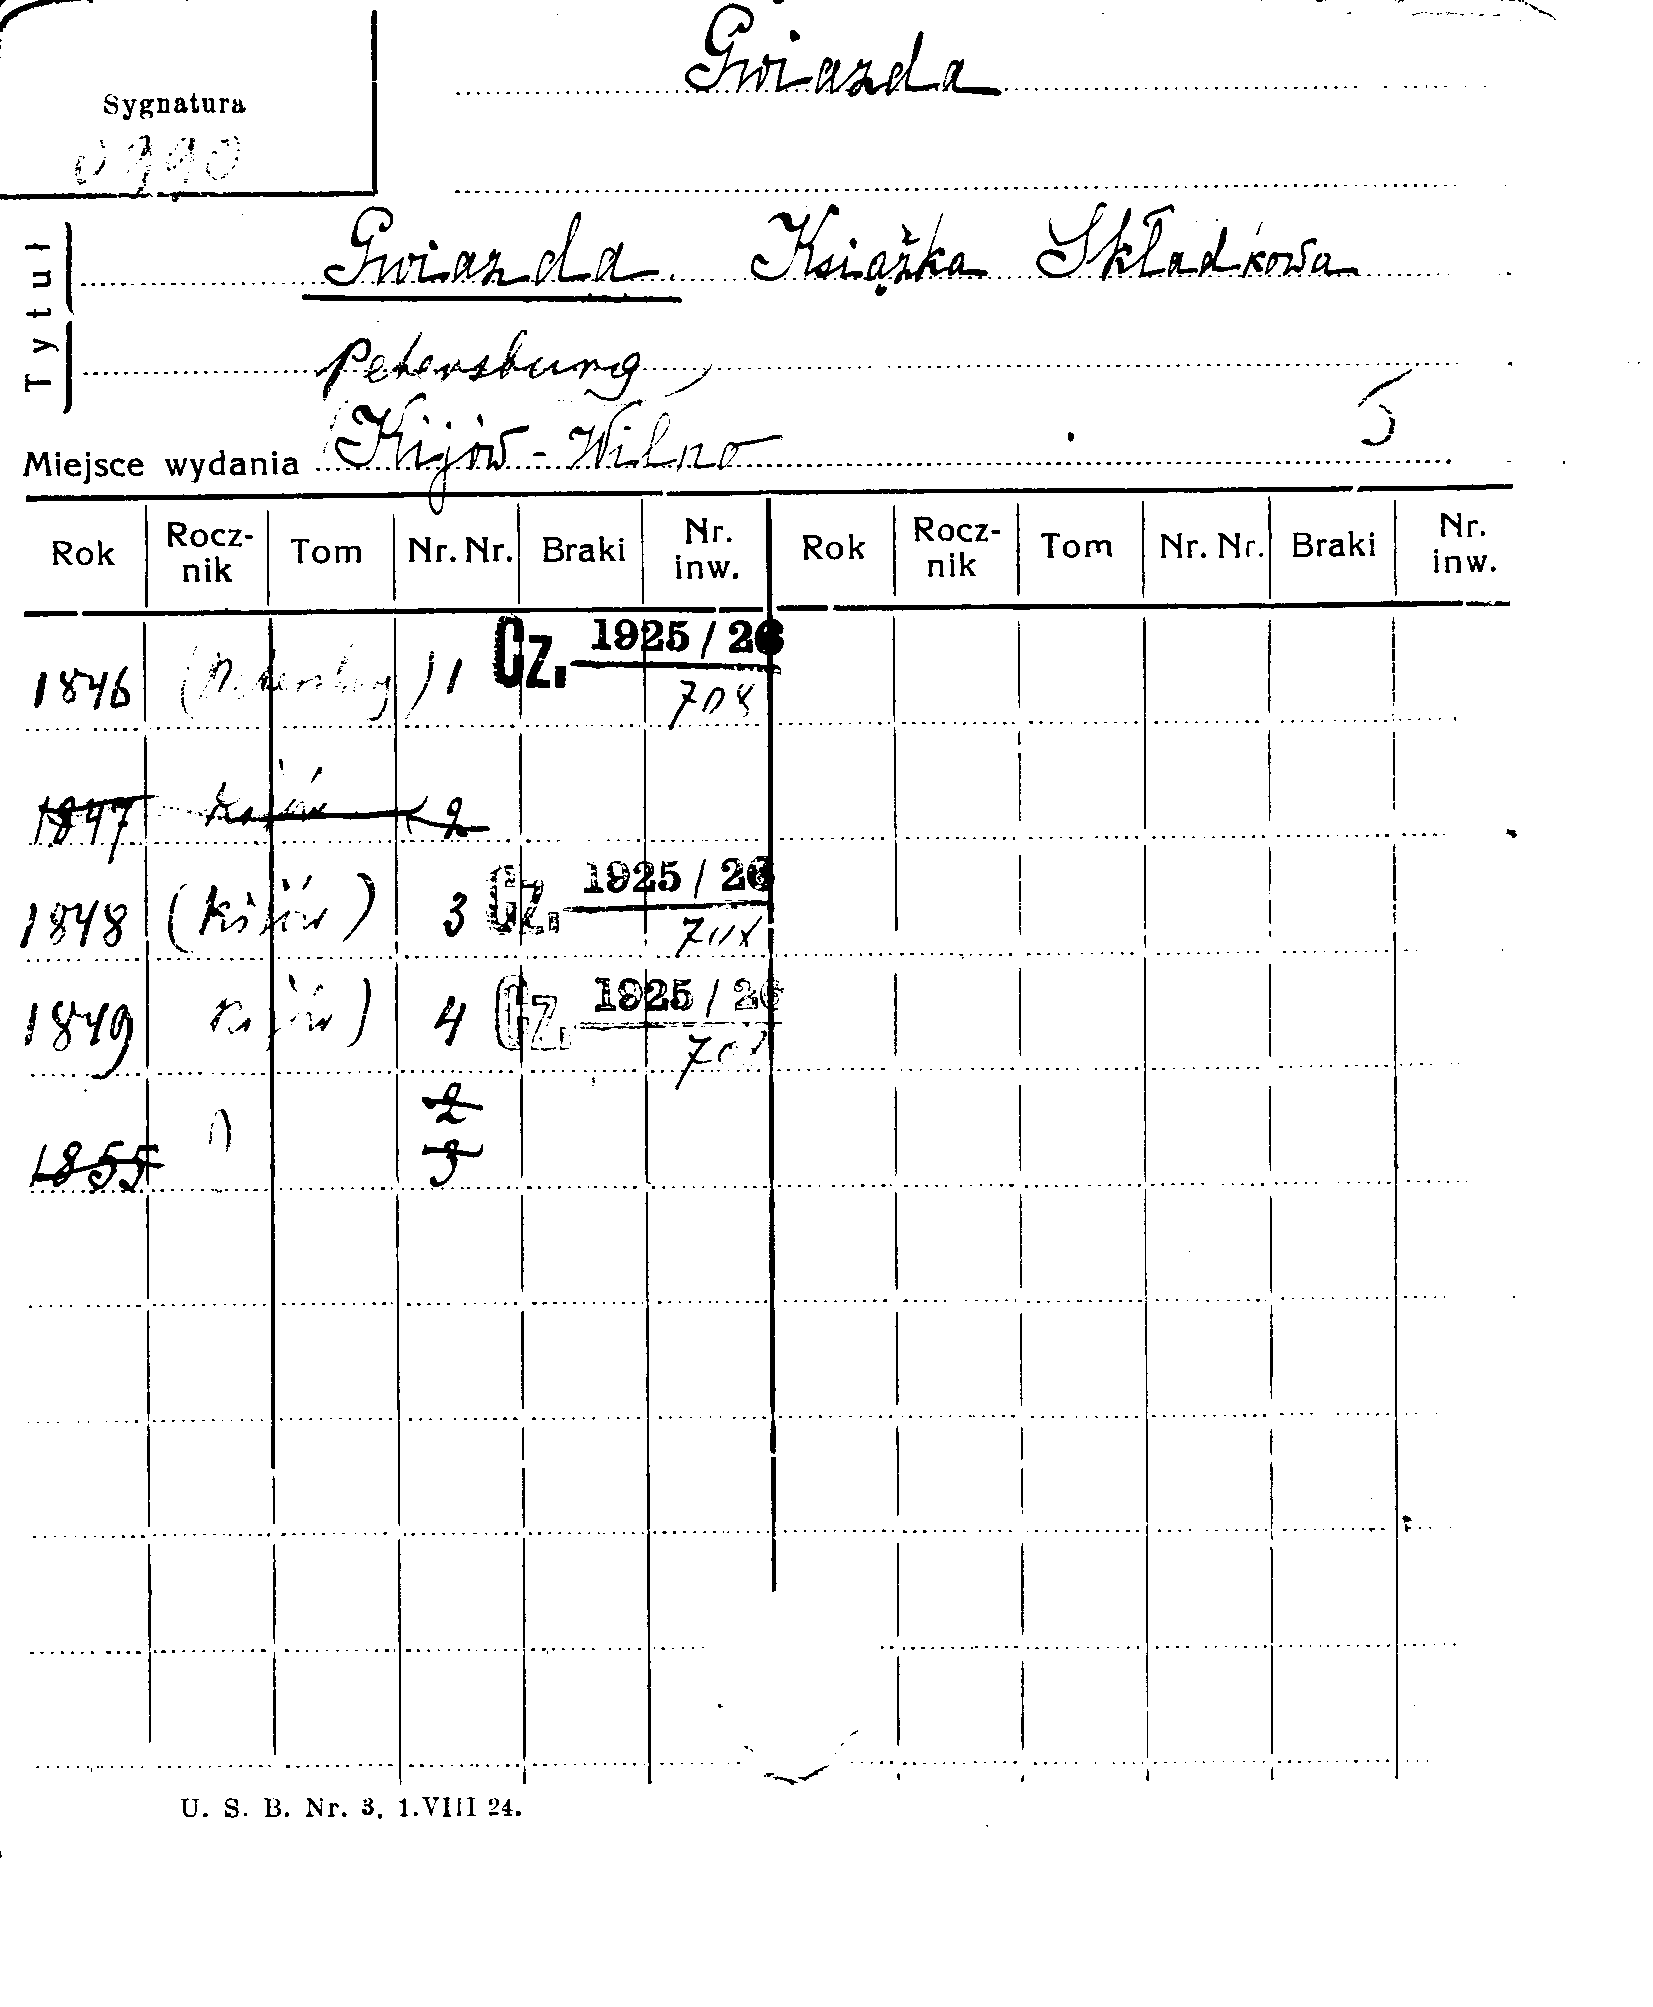 Gwiazda
Sygnatura
0990
Tytuł
Gwiazda Książka Składkowa
Petersburg,
Miejsce wydania Kijów - Wilno
Rok Rocz-nik Tom Nr. Nr. Braki Nr. inw. Rok Rocz-nik Tom Nr. Nr. Braki Nr. inw.
1846 (Petersburg) 1 Cz. 1925/26 708
1847 Kijów 2
1848 (Kijów) 3 Cz. 1925/26 708
1849 Kijów) 4 Cz. 1925/26 708
2
1855 3
U. S. B. Nr. 3, 1.VIII 24.